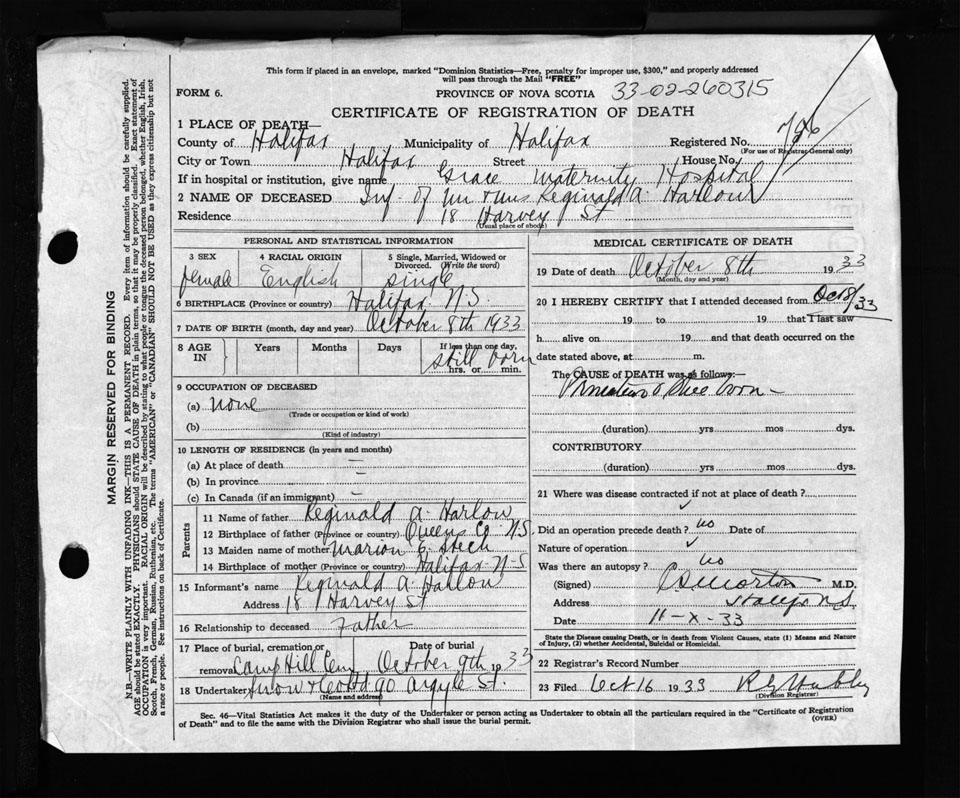 This form if placed in an envelope, marked "Dominion Statistics—Free, penalty for improper use, $300," and properly addressed
will pass through the Mail "FREE"
FORM 6.
PROVINCE OF NOVA SCOTIA 33-02-260315
CERTIFICATE OF REGISTRATION OF DEATH
1 PLACE OF DEATH—
County of Halifax Municipality of Halifax Registered No. 726
(For use of Registrar General only)
City or Town Halifax Street House No.
If in hospital or institution, give name Grace Maternity Hospital
2 NAME OF DECEASED Inf. of Mr & Mrs Reginald A. Harlow
Residence 18 Harvey St
(Usual place of abode)
PERSONAL AND STATISTICAL INFORMATION
3 SEX 4 RACIAL ORIGIN 5 Single, Married, Widowed or
Divorced. (Write the word)
female English Single
6 BIRTHPLACE (Province or country) Halifax N.S.
7 DATE OF BIRTH (month, day and year) October 8th 1933
8 AGE IN Years Months Days If less than one day,
still born
hrs. or min.
9 OCCUPATION OF DECEASED
(a) none
(Trade or occupation or kind of work)
(b)
(Kind of industry)
10 LENGTH OF RESIDENCE (in years and months)
(a) At place of death —
(b) In province —
(c) In Canada (if an immigrant) —
Parents
11 Name of father Reginald A. Harlow
12 Birthplace of father (Province or country) Queens Co N.S.
13 Maiden name of mother Marion E.
14 Birthplace of mother (Province or country) Halifax N-S
15 Informant's name Reginald A. Harlow
Address 18 Harvey St
16 Relationship to deceased Father
17 Place of burial, cremation or removal Camp Hill Cem
Date of burial October 9th 1933
18 Undertaker Snow & Co Ltd 90 Argyle St.
(Name and address)
MEDICAL CERTIFICATE OF DEATH
19 Date of death October 8th 1933
(Month, day and year)
20 I HEREBY CERTIFY that I attended deceased from Oct 8/33
19 to 19 that I last saw
h alive on 19 and that death occurred on the
date stated above, at m.
The CAUSE of DEATH was as follows:
(duration) yrs mos dys.
CONTRIBUTORY
(duration) yrs mos dys.
21 Where was disease contracted if not at place of death?
Did an operation precede death? no Date of
Nature of operation
Was there an autopsy? no
(Signed) C S Morton M.D.
Address
Date 11-X-33
State the Disease causing Death, or in death from Violent Causes, state (1) Means and Nature
of Injury, (2) whether Accidental, Suicidal or Homicidal.
22 Registrar's Record Number
23 Filed Oct 16 1933
(Division Registrar)
Sec. 46—Vital Statistics Act makes it the duty of the Undertaker or person acting as Undertaker to obtain all the particulars required in the "Certificate of Registration
of Death" and to file the same with the Division Registrar who shall issue the burial permit.
(OVER)
MARGIN RESERVED FOR BINDING
N.B.—WRITE PLAINLY WITH UNFADING INK—THIS IS A PERMANENT RECORD. Every item of information should be carefully supplied.
AGE should be stated EXACTLY. PHYSICIANS should STATE CAUSE OF DEATH in plain terms, so that it may be properly classified. Exact statement of
OCCUPATION is very important. RACIAL ORIGIN will be described by stating to what people or tongue the deceased person belonged, whether English, Irish,
Scotch, French, German, Russian, Ruthenian, etc. The terms "AMERICAN" or "CANADIAN" SHOULD NOT BE USED as they express citizenship but not
a race or people. See instructions on back of Certificate.